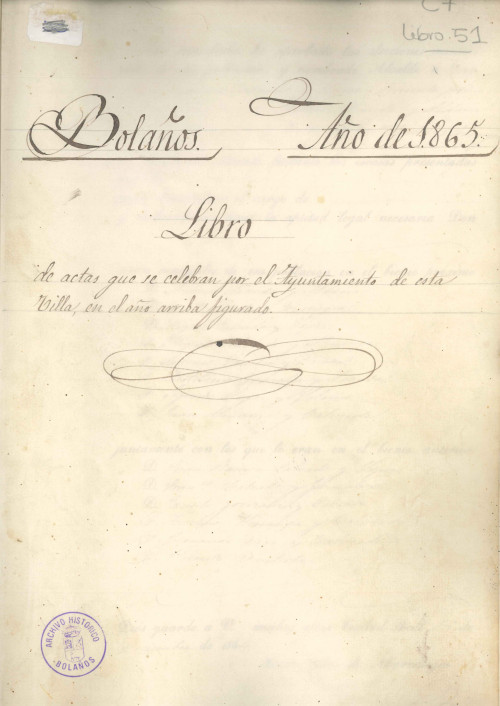 C7
Libro 51
Bolaños. Año de 1865.
Libro
de actas que se celebran por el Ayuntamiento de esta
Villa, en el año arriba figurado.
ARCHIVO HISTORICO
BOLAÑOS